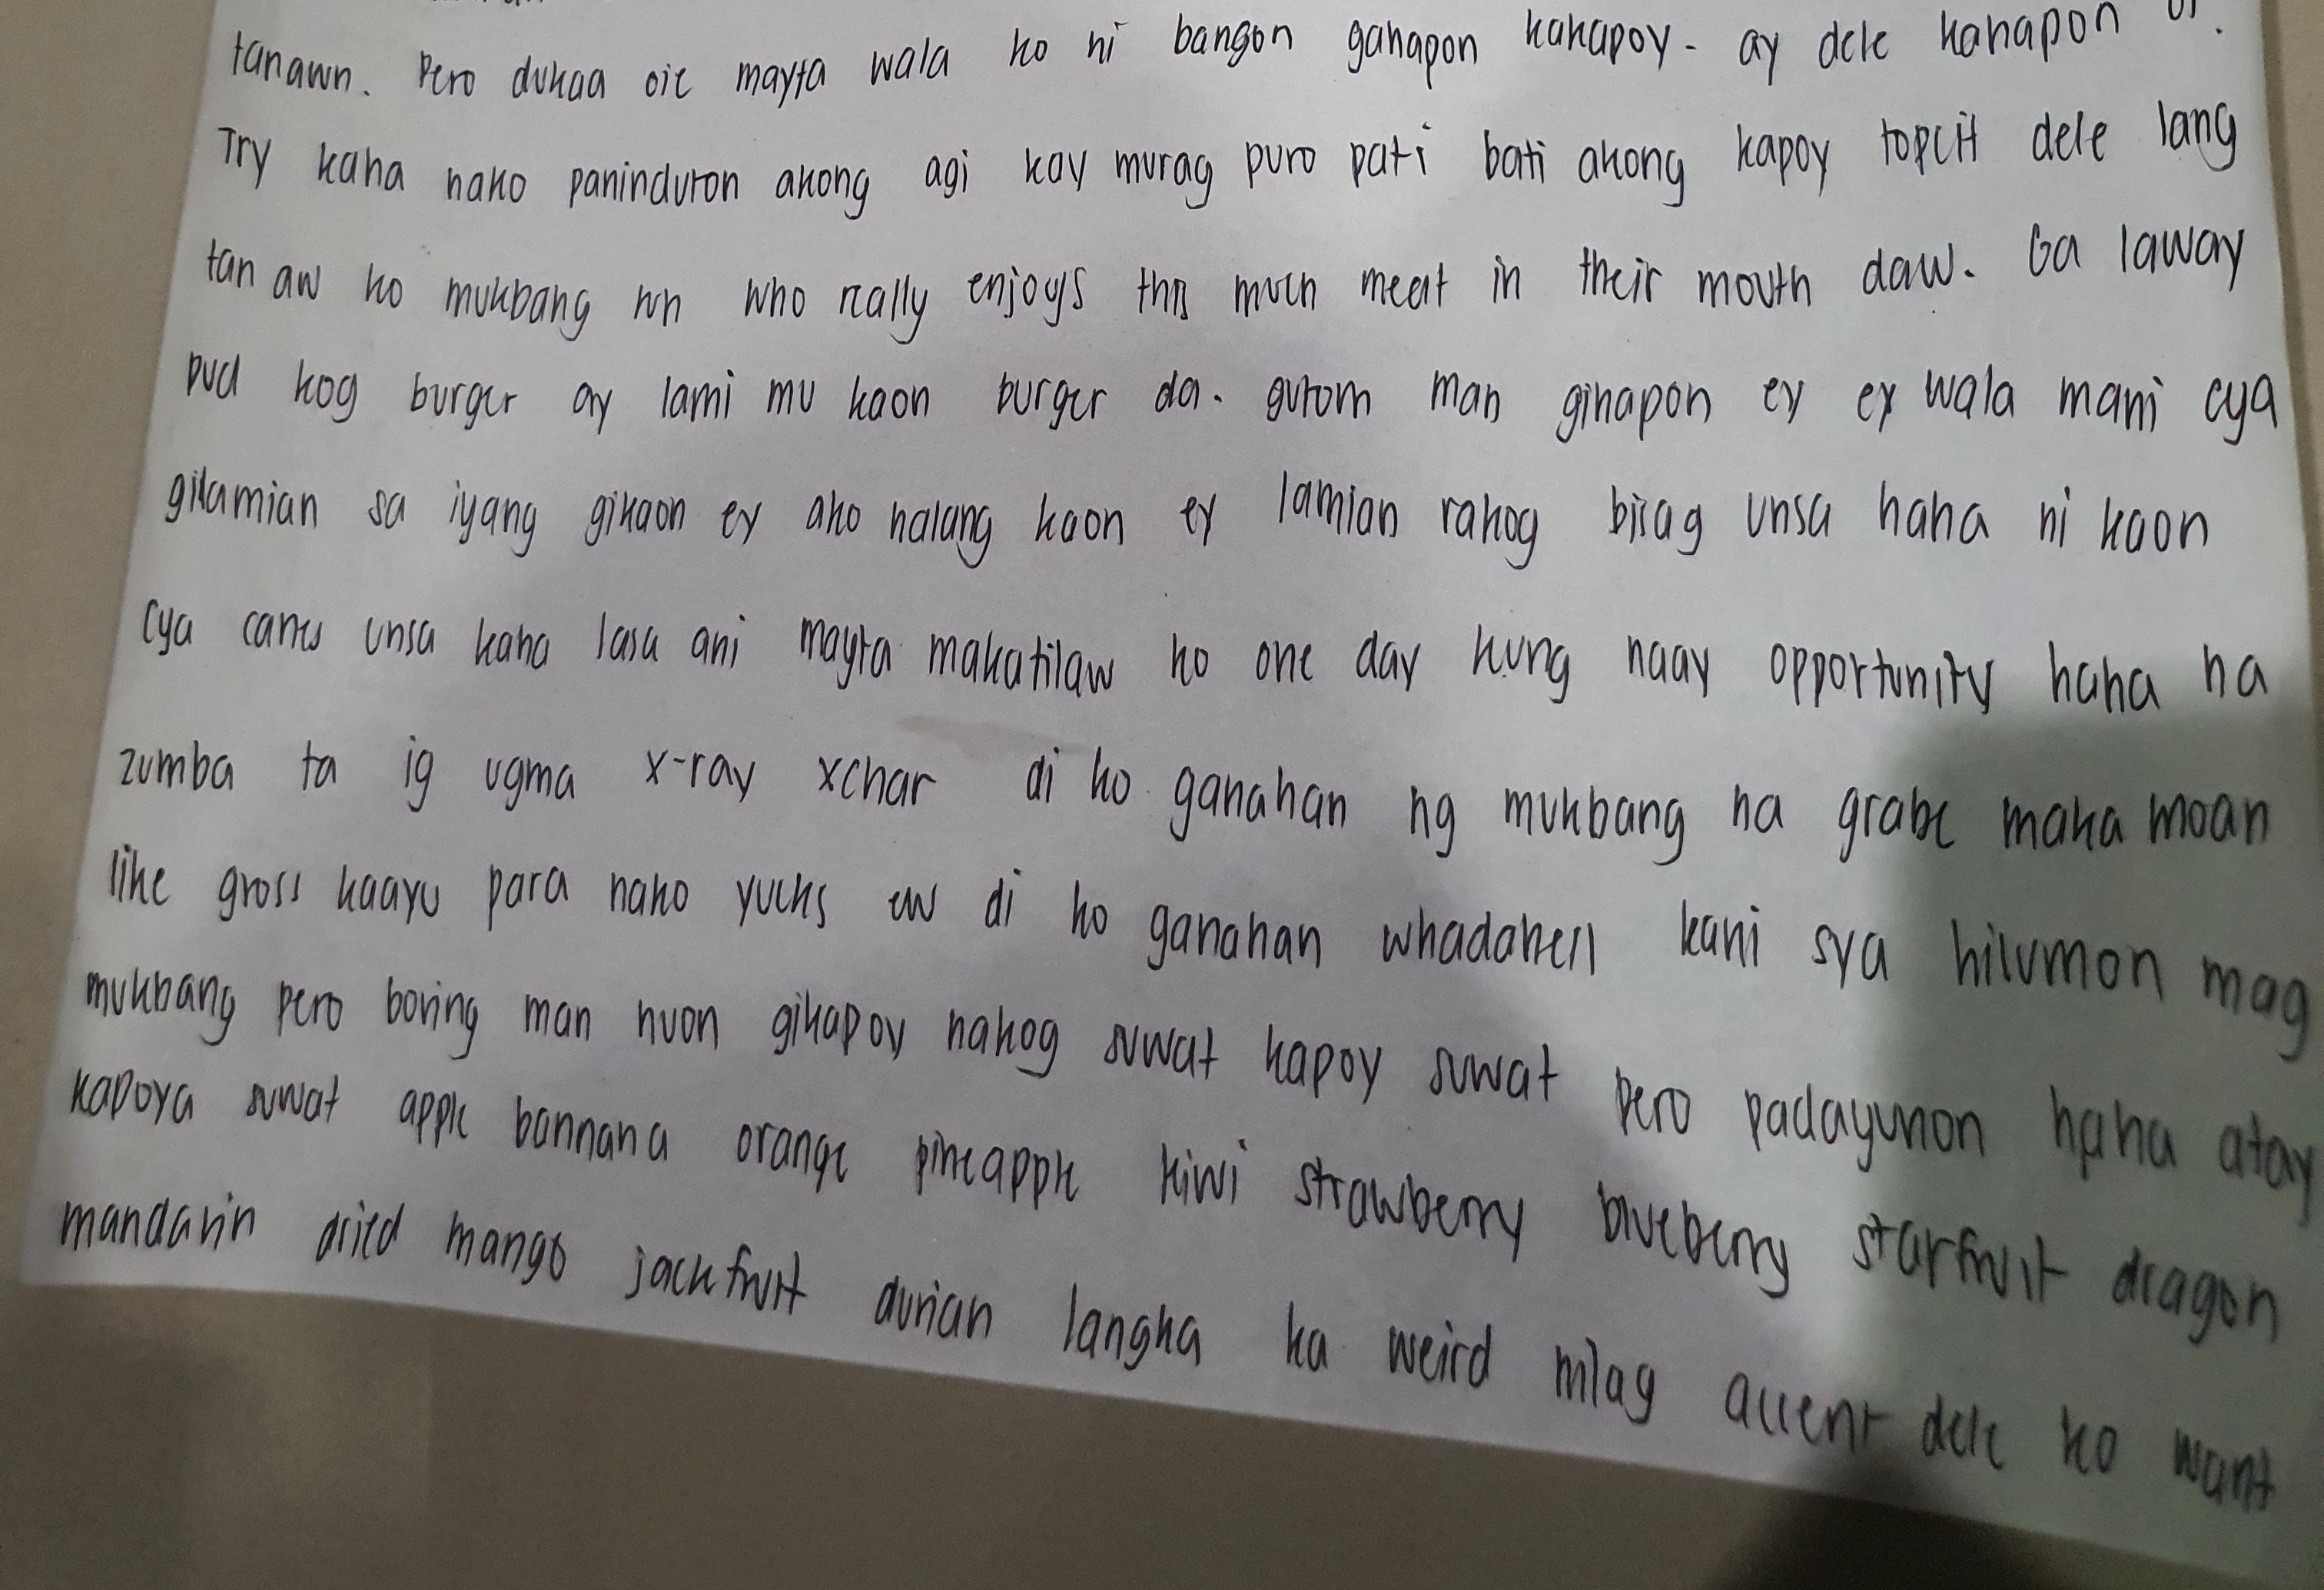 tanawn. Pero dukaa oie mayta wala ko ni bangon gahapon kakapoy- ay dele kahapon oi.
Try kaha nako paninduton akong agi kay murag puro pati bati akong kapoy topcit dele lang
tan aw ko mukbang nun who really enjoys this much meat in their mouth daw. Ga laway
pud kog burger ay lami mu kaon burger da. gutom man gihapon ey ey wala mani cya
gilamian sa iyang gikaon ey ako nalang kaon ey lamian rakog bisag unsa haha ni kaon
cya canes unsa kaha lasa ani mayta makatilaw ko one day kung naay opportunity haha na
zumba ta ig ugma x-ray xchar di ko ganahan ng mukbang na grabe maka moan
like gross kaayu para nako yucks ew di ko ganahan whadahell kani sya hilumon mag
mukbang pero boring man nuon gikapoy nakog suwat kapoy suwat pero padayunon haha atay
kapoya suwat apple bannana orange pineapple kiwi strawberry blueberry starfruit dragon
mandarin dried mango jackfruit durian langka ka weird mlag accent dele ko want